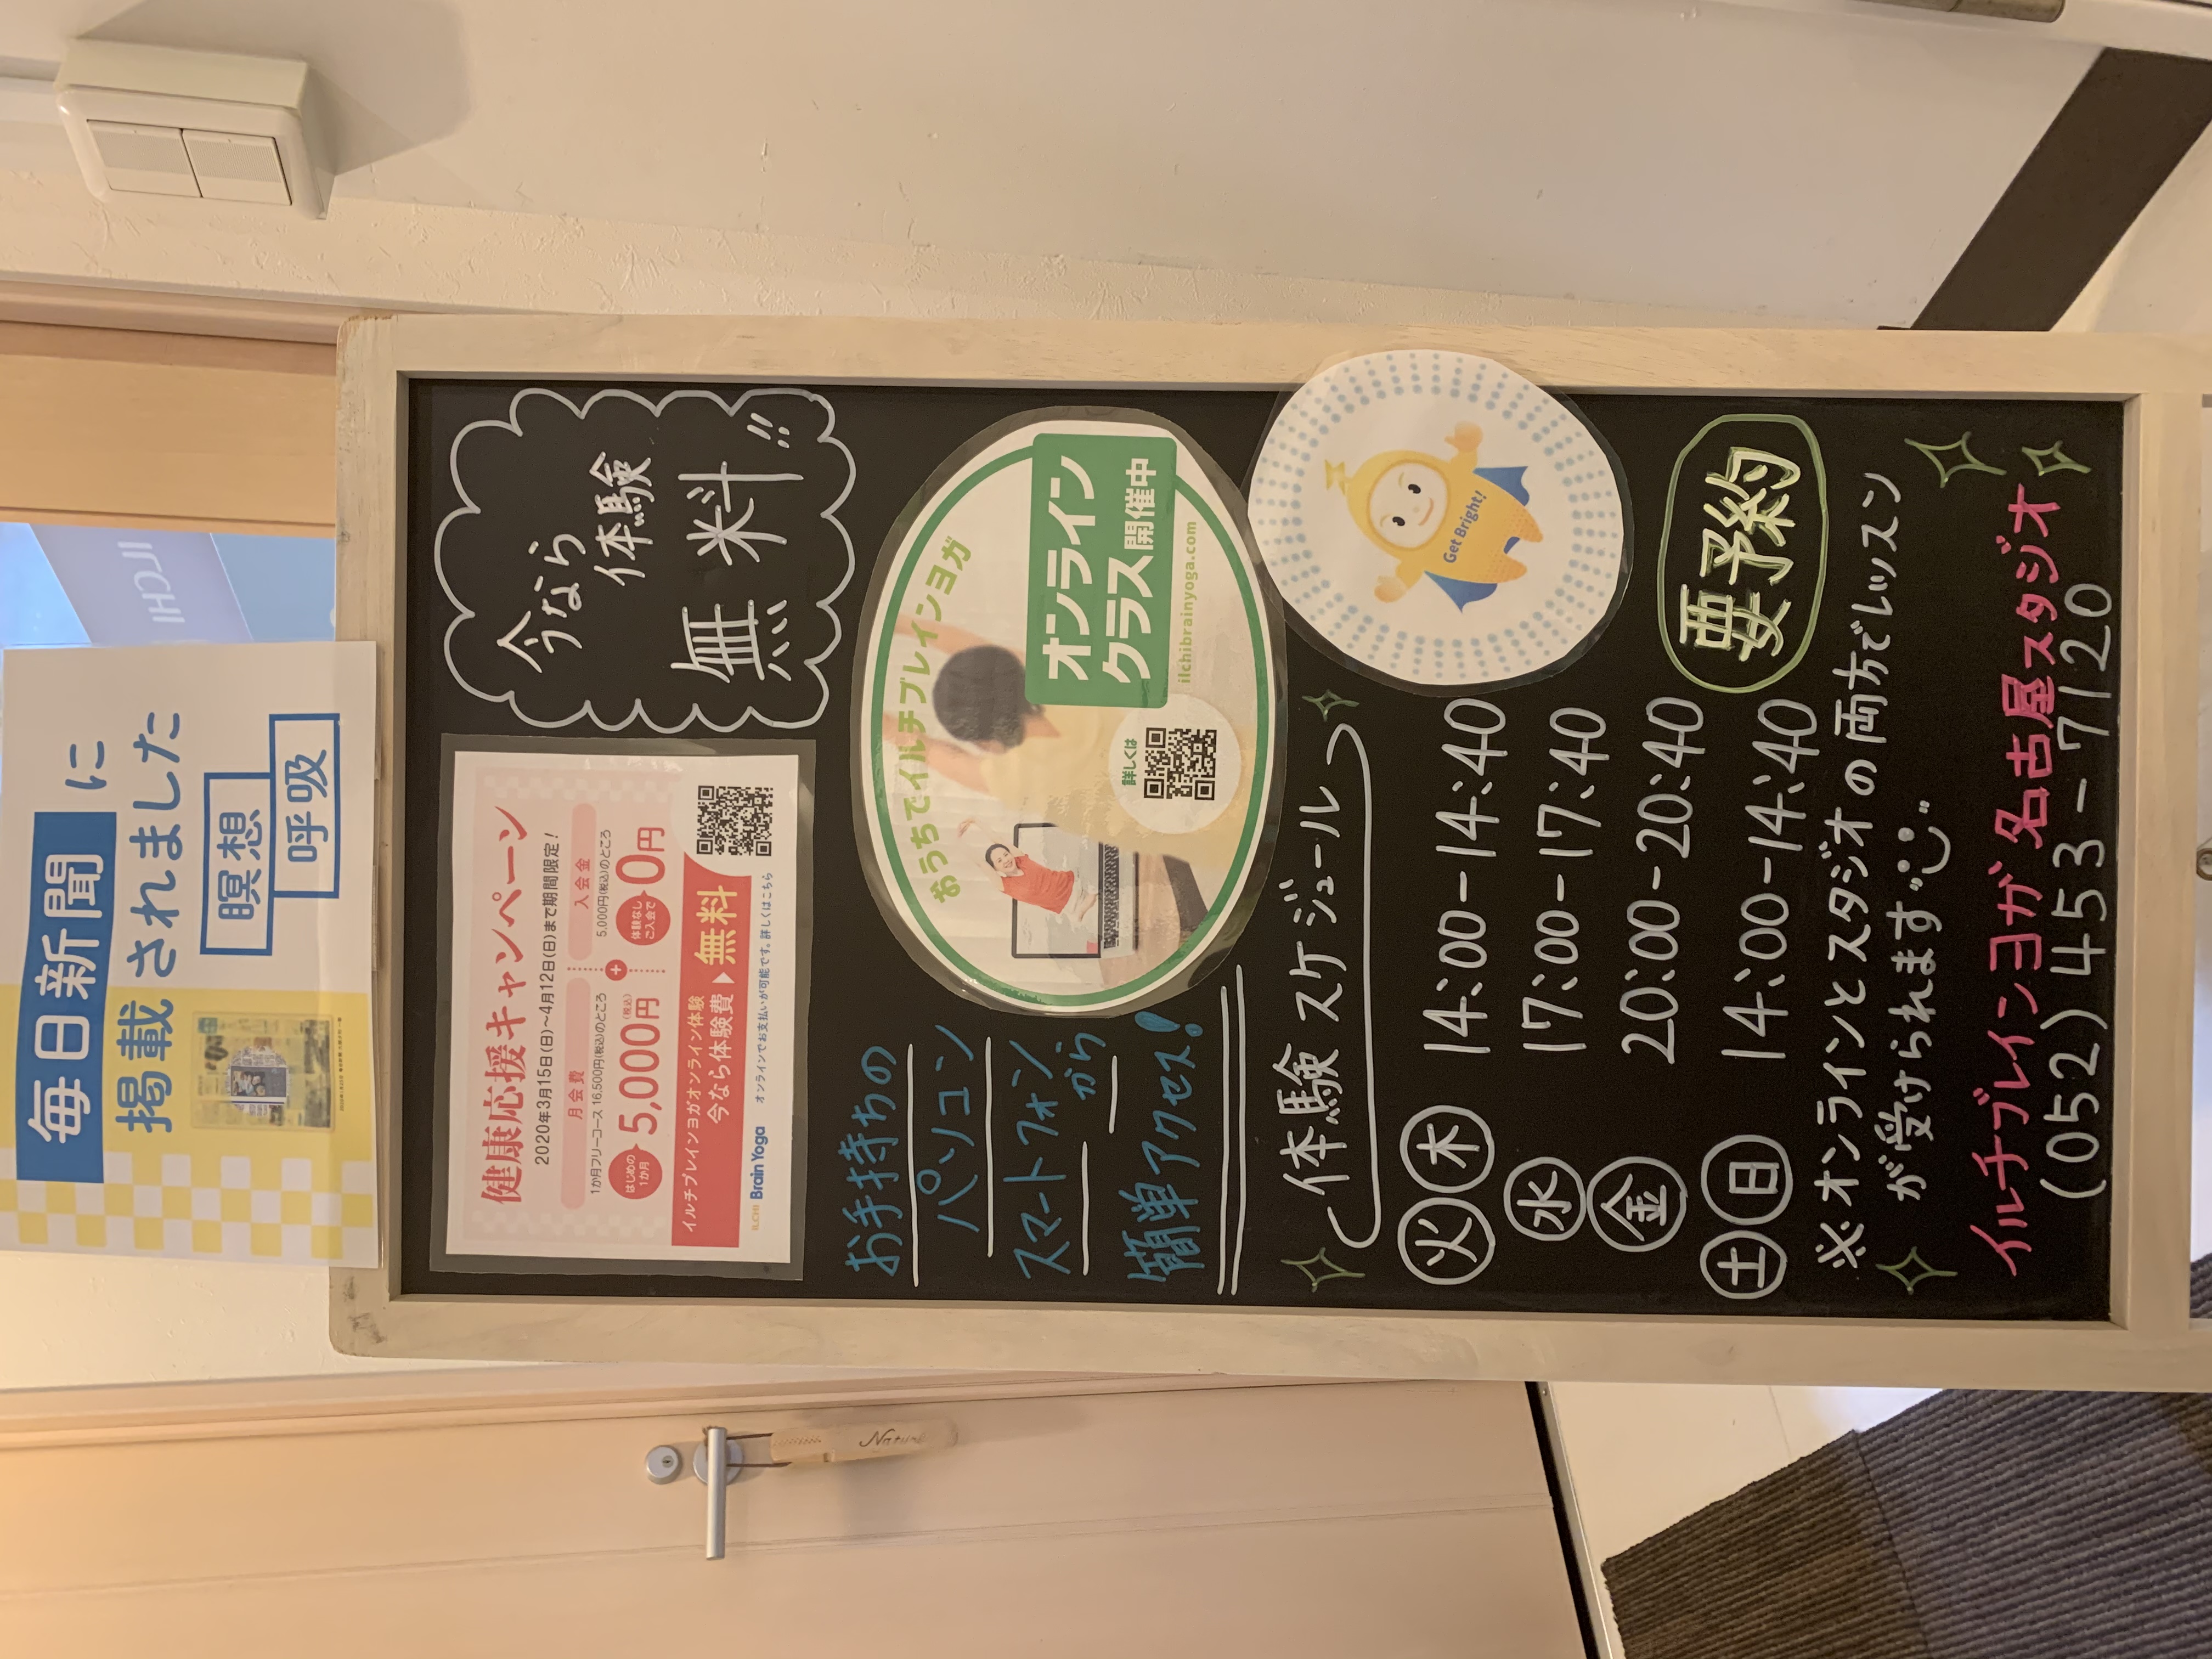 毎日新聞に
掲載されました
瞑想
呼吸
ILCHI
健康応援キャンペーン
2020年3月15日(日)〜4月12日(日)まで期間限定!
月会費
1か月フリーコース 16,500円(税込)のところ
はじめの
1か月
5,000円(税込)
+
入会金
5,000円(税込)のところ
体験なし
ご入会で
0円
イルチブレインヨガオンライン体験
今なら体験費▶無料
ILCHI Brain Yoga
オンラインでお支払いが可能です。詳しくはこちら
今なら
体験
無料!!
お手持ちの
パソコン
スマートフォン
から
簡単アクセス!
おうちでイルチブレインヨガ
オンライン
クラス開催中
ilchibrainyoga.com
詳しくは
体験スケジュール
Get Bright!
火 木 14:00-14:40
水 17:00-17:40
金 20:00-20:40
土 日 14:00-14:40
要予約
※オンラインとスタジオの両方でレッスン
が受けられます
イルチブレインヨガ 名古屋スタジオ
(052)453-7120